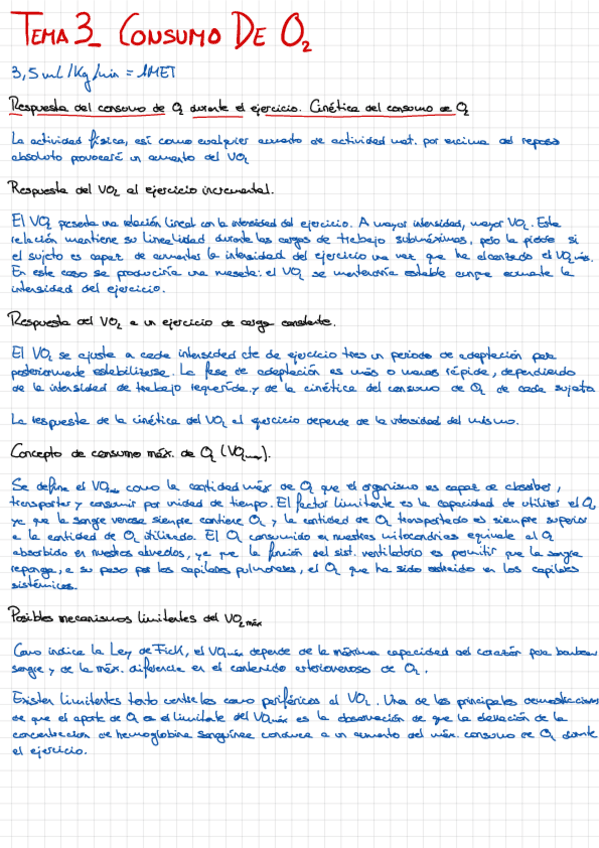 TEMA 3_ CONSUMO DE O₂
3,5 ml/Kg/min = 1MET
Respuesta del consumo de O₂ durante el ejercicio. Cinética del consumo de O₂
La actividad física, así como cualquier aumento de actividad met. por encima del reposo
absoluto provocará un aumento del VO₂
Respuesta del VO₂ al ejercicio incremental.
El VO₂ presenta una relación lineal con la intensidad del ejercicio. A mayor intensidad, mayor VO₂. Esta
relación mantiene su linealidad durante las cargas de trabajo submáximas, pero la pierde si
el sujeto es capaz de aumentar la intensidad del ejercicio una vez que ha alcanzado el VO₂máx.
En este caso se produciría una meseta: el VO₂ se mantendría estable aunque aumente la
intensidad del ejercicio.
Respuesta del VO₂ a un ejercicio de carga constante.
El VO₂ se ajusta a cada intensidad cte de ejercicio tras un periodo de adaptación para
posteriormente estabilizarse. La fase de adaptación es más o menos rápida, dependiendo
de la intensidad de trabajo requerida y de la cinética del consumo de O₂ de cada sujeto
La respuesta de la cinética del VO₂ al ejercicio depende de la intensidad del mismo.
Concepto de consumo máx. de O₂ (VO₂máx).
Se define el VO₂máx como la cantidad máx de O₂ que el organismo es capaz de absorber,
transportar y consumir por unidad de tiempo. El factor limitante es la capacidad de utilizar el O₂
ya que la sangre venosa siempre contiene O₂ y la cantidad de O₂ transportado es siempre superior
a la cantidad de O₂ utilizado. El O₂ consumido en nuestras mitocondrias equivale al O₂
absorbido en nuestros alveolos, ya que la función del sist. ventilatorio es permitir que la sangre
reponga, a su paso por los capilares pulmonares, el O₂ que ha sido extraído en los capilares
sistémicos.
Posibles mecanismos limitantes del VO₂máx
Como indica la Ley de Fick, el VO₂máx depende de la máxima capacidad del corazón para bombear
sangre y de la máx. diferencia en el contenido arteriovenoso de O₂.
Existen limitantes tanto centrales como periféricos al VO₂. Una de las principales demostraciones
de que el aporte de O₂ es el limitante del VO₂máx es la observación de que la elevación de la
concentración de hemoglobina sanguínea conduce a un aumento del máx. consumo de O₂ durante
el ejercicio.